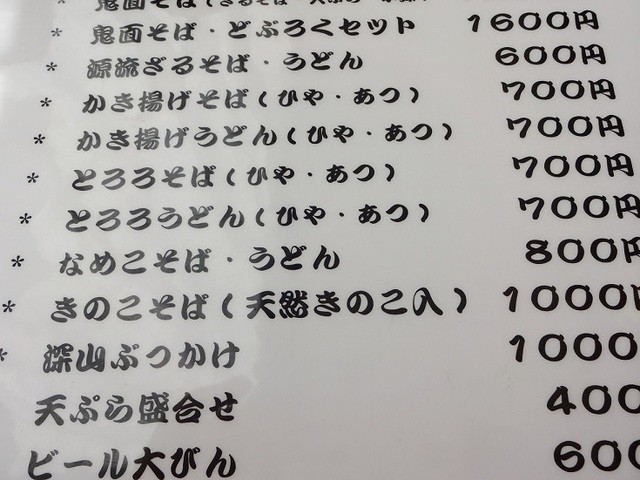 * 鬼面そば・どぶろくセット 1600円
* 源流ざるそば・うどん 600円
* かき揚げそば(ひや・あつ) 700円
* かき揚げうどん(ひや・あつ) 700円
* とろろそば(ひや・あつ) 700円
* とろろうどん(ひや・あつ) 700円
* なめこそば・うどん 800円
* きのこそば(天然きのこ入) 1000円
* 深山ぶっかけ 1000
天ぷら盛合せ 400
ビール大びん 600